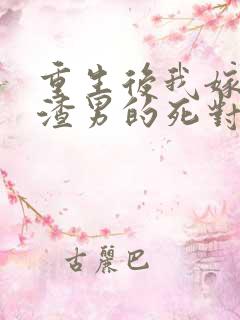 重生後我嫁
渣男的死對
古麗巴